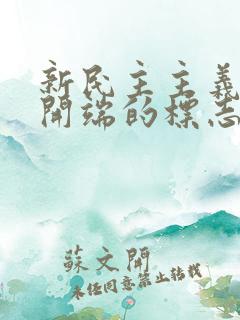 新民主主義
開端的標志
蘇文開
未經同意禁止轉載